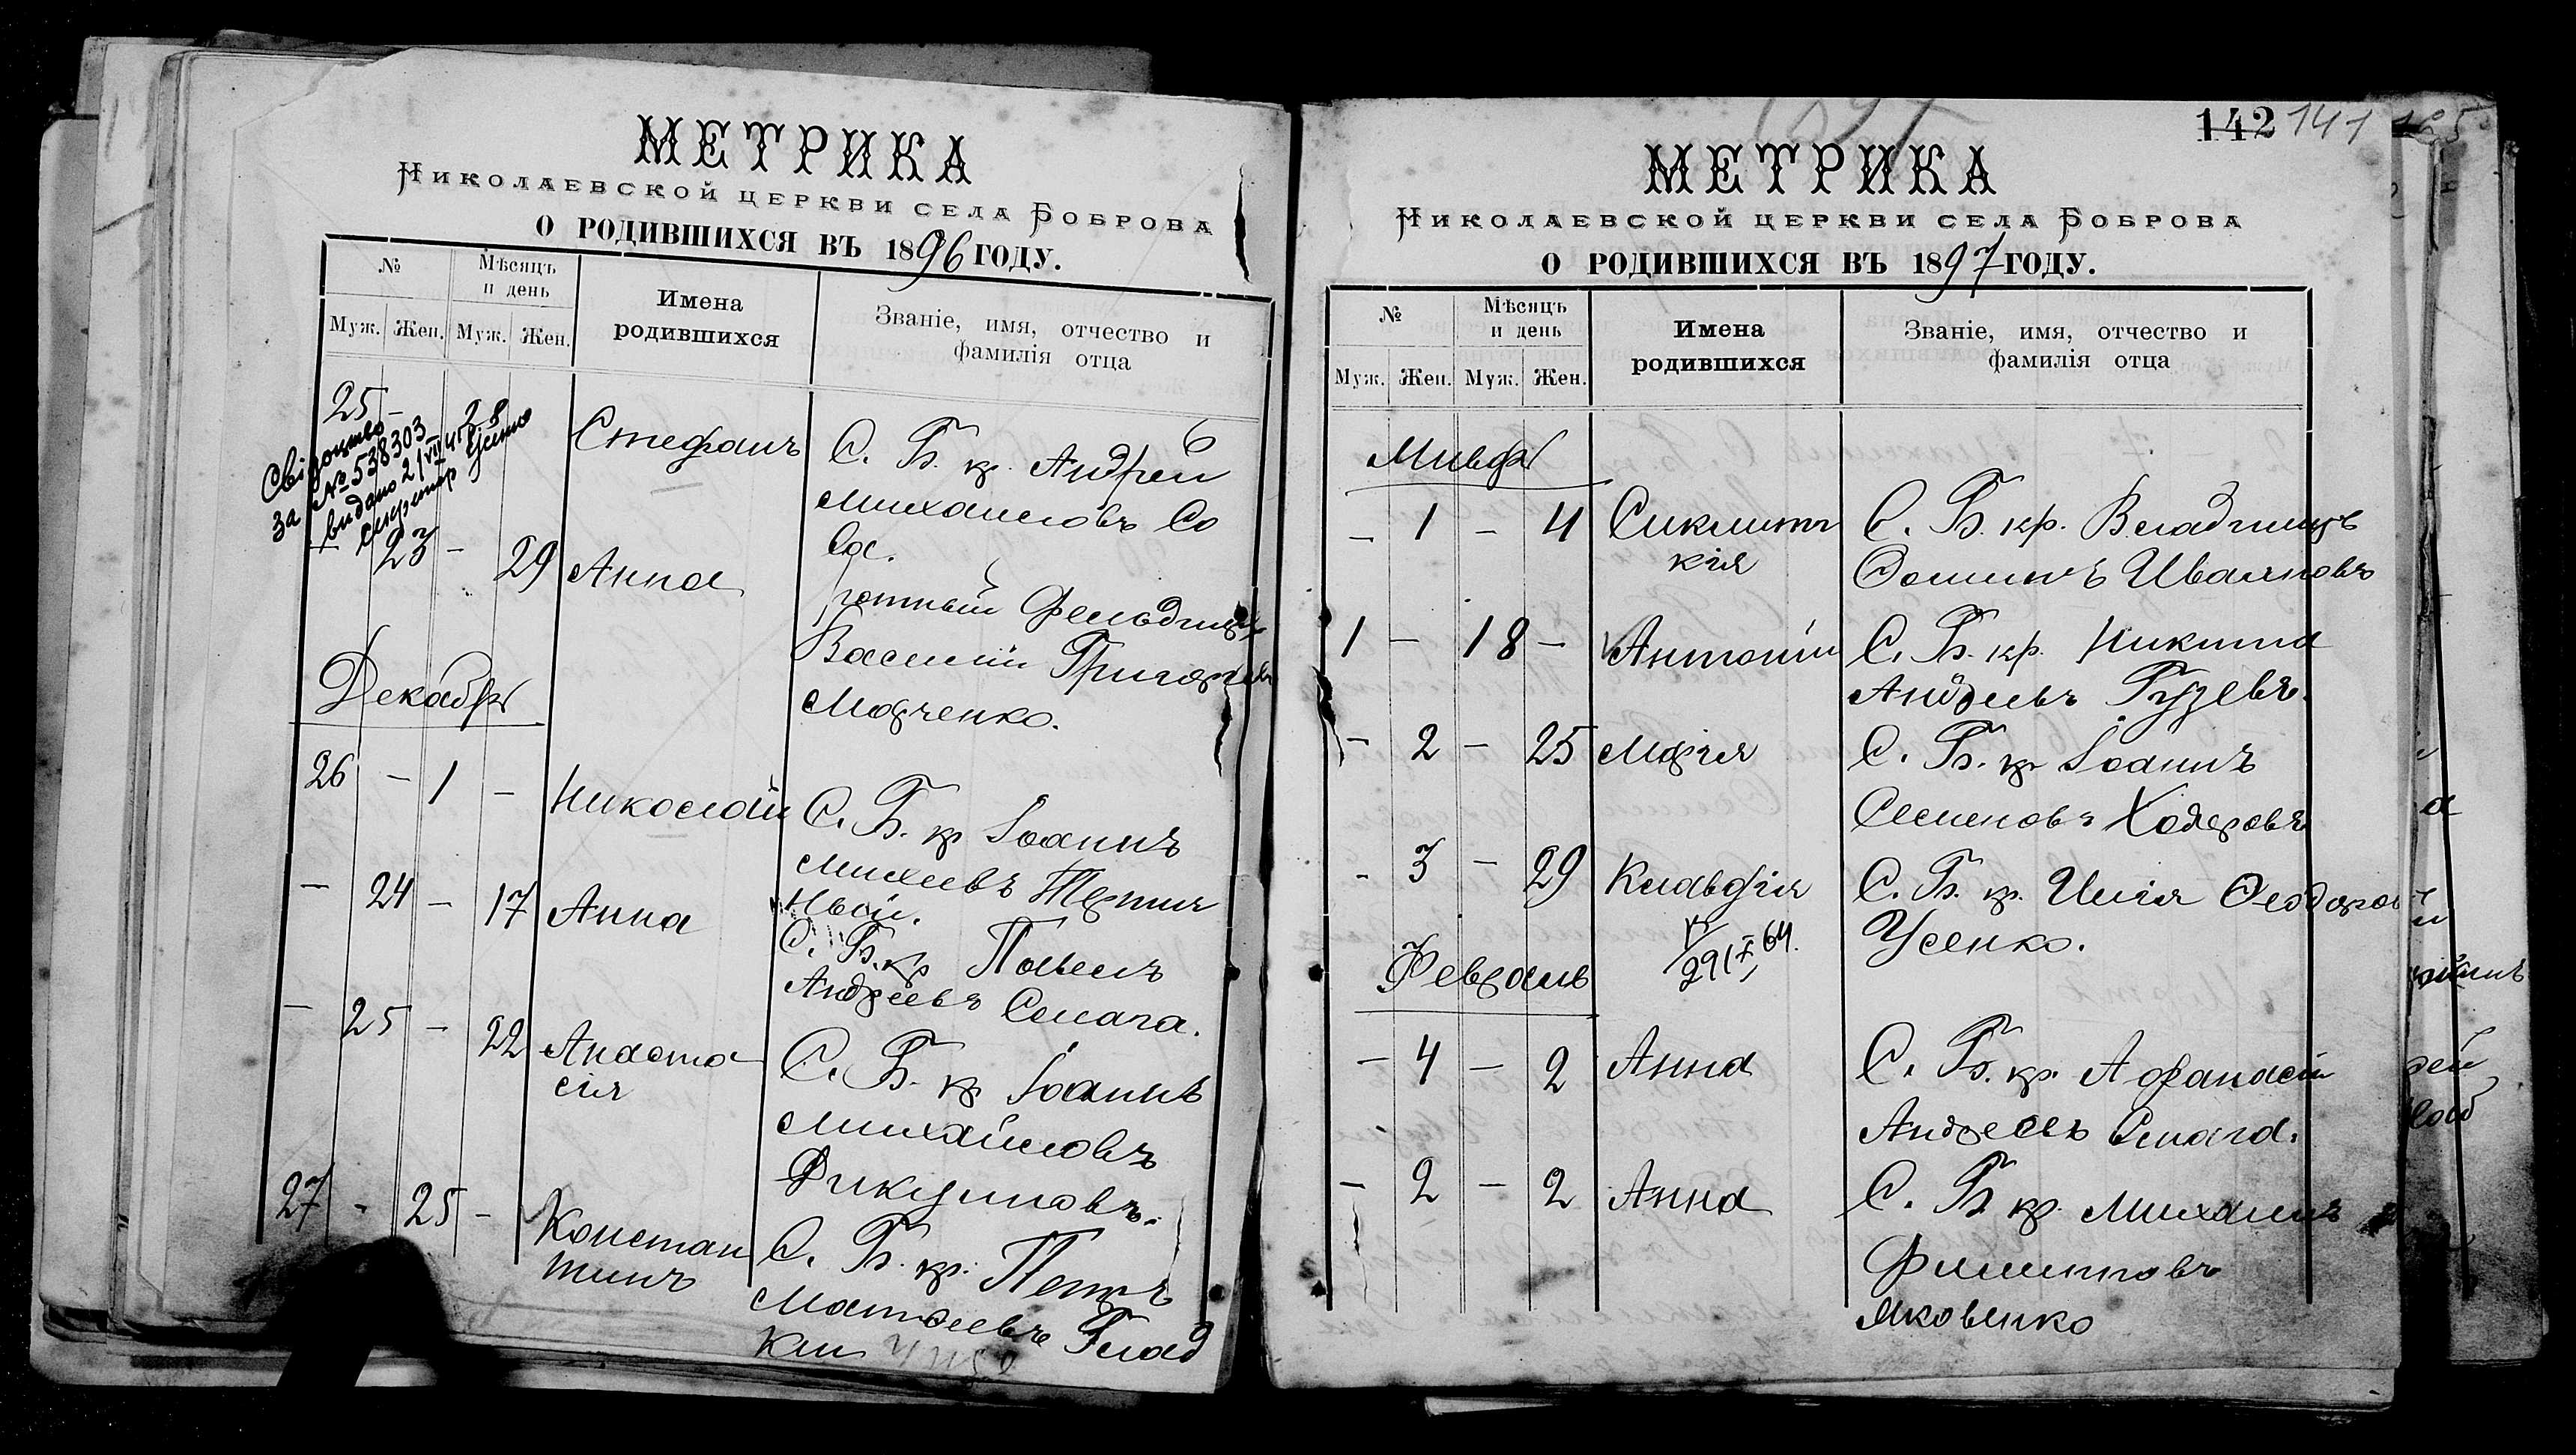 МЕТРИКА
НИКОЛАЕВСКОЙ ЦЕРКВИ СЕЛА БОБРОВА
О РОДИВШИХСЯ ВЪ 1896 ГОДУ.
№
Мѣсяцъ и день
Имена родившихся
Званіе, имя, отчество и фамилія отца
Муж. Жен. Муж. Жен.
25 - 28
Свідоцтво
за № 538303
видано 21/VII 41
секретар
Стефанъ
С. Б. кр. Андрей
Михаиловъ Со
- 23 - 29 Анна
ротный Фельдшеръ
Василій Григорьевъ
Марченко.
Декабрь
26 - 1 - Николай
С. Б. кр Іоаннъ
Михеевъ
- 24 - 17 Анна
С. Б. кр Павелъ
Андреевъ Смага.
- 25 - 22 Анаста
сія
С. Б. кр Іоаннъ
Михайловъ
Дикуновъ.
27 - 25 - Констан
тинъ
С. Б. кр. Петръ
Матвеевъ Глад
кий
142 141 125
1897
МЕТРИКА
НИКОЛАЕВСКОЙ ЦЕРКВИ СЕЛА БОБРОВА
О РОДИВШИХСЯ ВЪ 1897 ГОДУ.
№
Мѣсяцъ и день
Имена родившихся
Званіе, имя, отчество и фамилія отца
Муж. Жен. Муж. Жен.
Январь
- 1 - 4 Синклити
кія
С. Б. кр. Владиміръ
Ивановъ
1 - 18 - Антоній
С. Б. кр. Никита
Андреевъ Гузевъ.
- 2 - 25 Марія
С. Б. кр Іоаннъ
Семеновъ Ходаровъ
- 3 - 29 Клавдія
С. Б. кр. Илія Ѳеодоров
Усенко.
29/I 64.
Февраль
- 4 - 2 Анна
С. Б. кр. Афанасій
Андреевъ Смага.
- 2 - 2 Анна
С. Б. кр. Михаилъ
Филиповъ
Яковенко